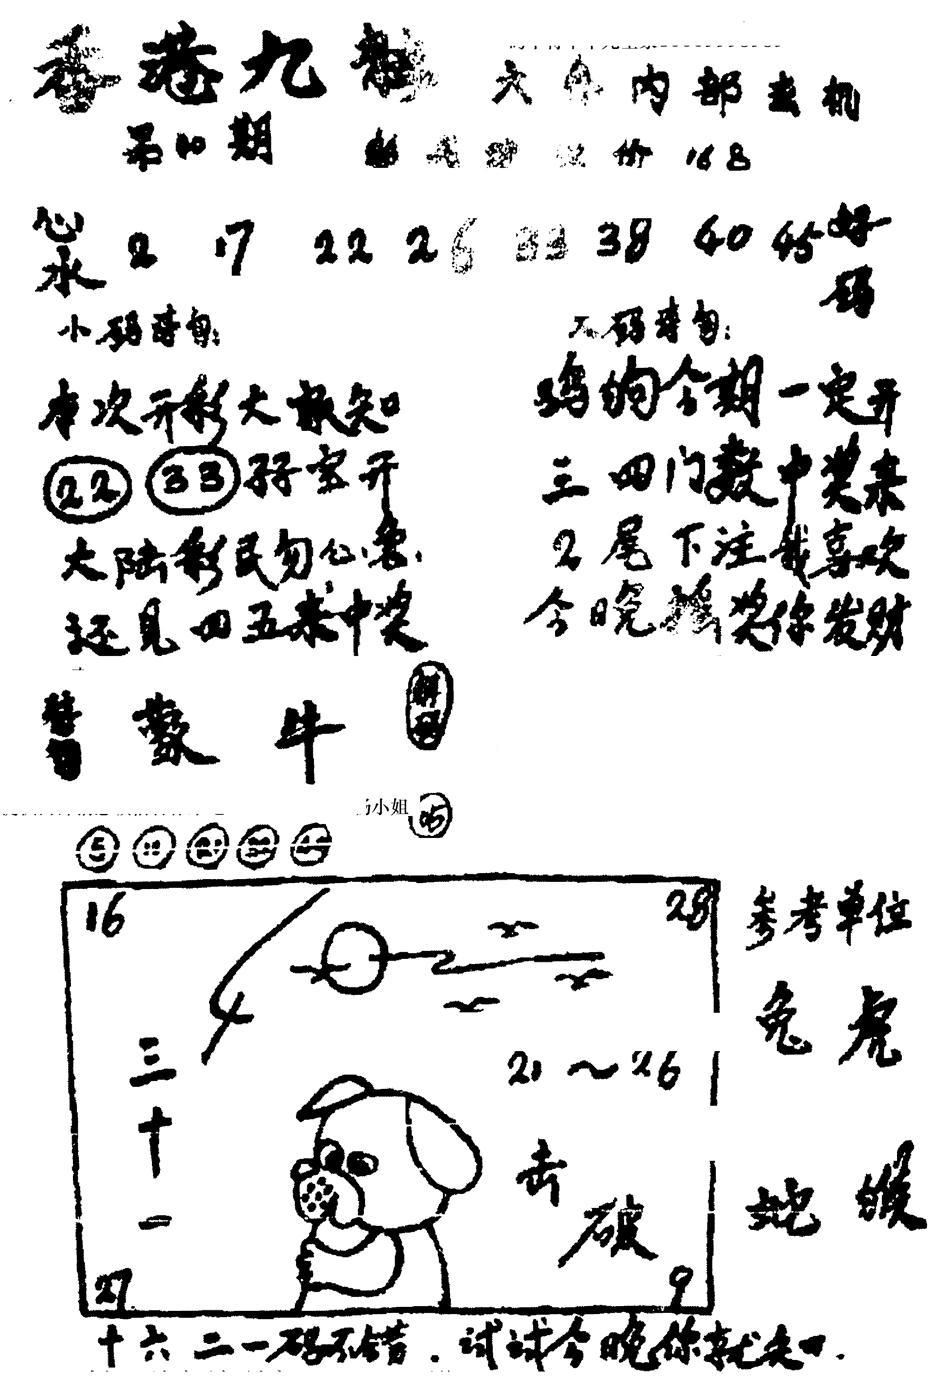 香港九龍
六合内部玄机
第10期
价168
心水
2 17 22 26 33 38 40 45
好码
小码诗句:
本次开彩大概知
22 33 孖宝开
大陆彩民勿心急.
还见四五来中奖
大码诗句:
鸡狗今期一定开
三四门数中奖来
2尾下注我喜欢
今晚搖奖你发财
蒙牛
解码
小姐
05
16
28
三十一
21~26
击破
27
9
参考单位
兔虎
蛇猴
十六二一码不错.试试今晚你就知.